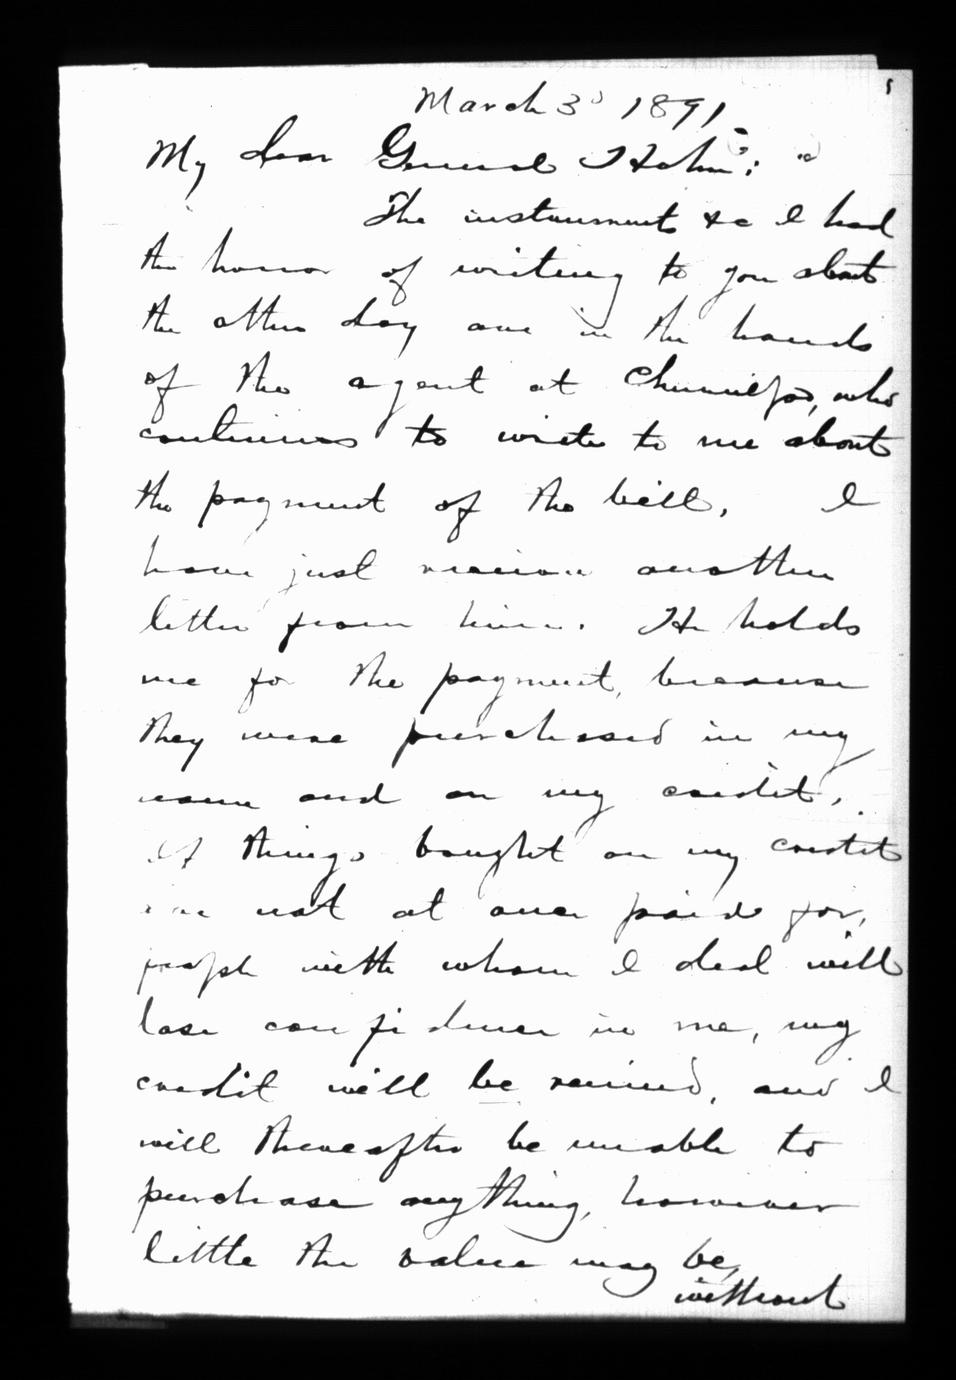 March 3d 1891
My dear General Hahn:
The instruments &c I had
the honor of writing to you about
the other day are in the hands
of the agent at Chemulpo, who
continues to write to me about
the payment of the bill. I
have just received another
letter from him. He holds
me for the payment, because
they were purchased in my
name and on my credit.
If things bought on my credit
are not at once paid for,
people with whom I deal will
lose confidence in me, my
credit will be ruined, and I
will thereafter be unable to
purchase anything, however
little the value may be,
without